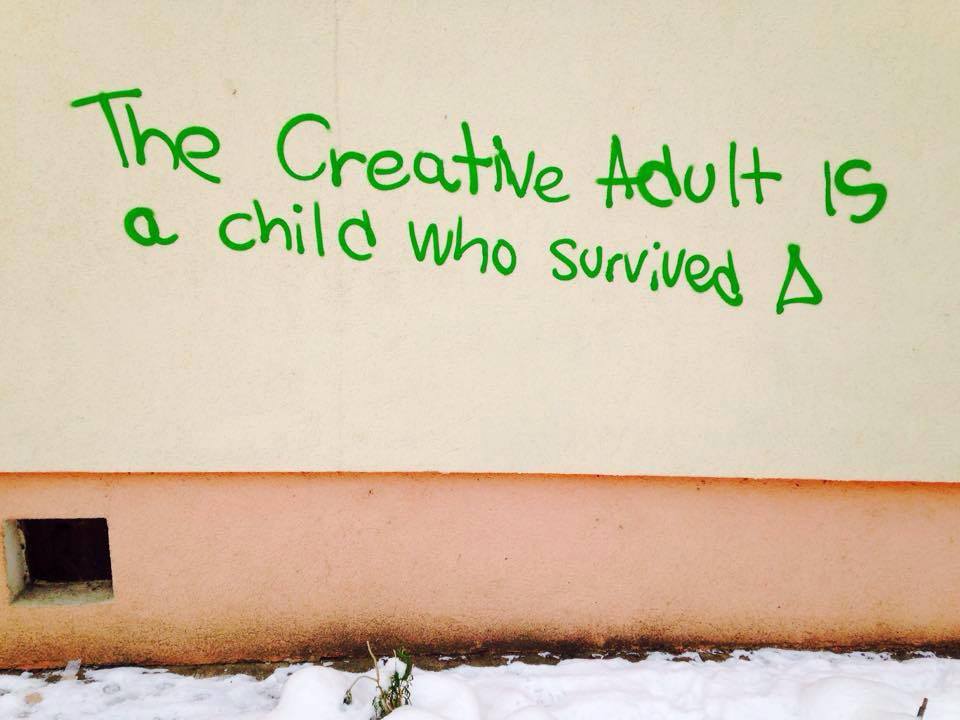 The Creative Adult is
a child who survived Δ